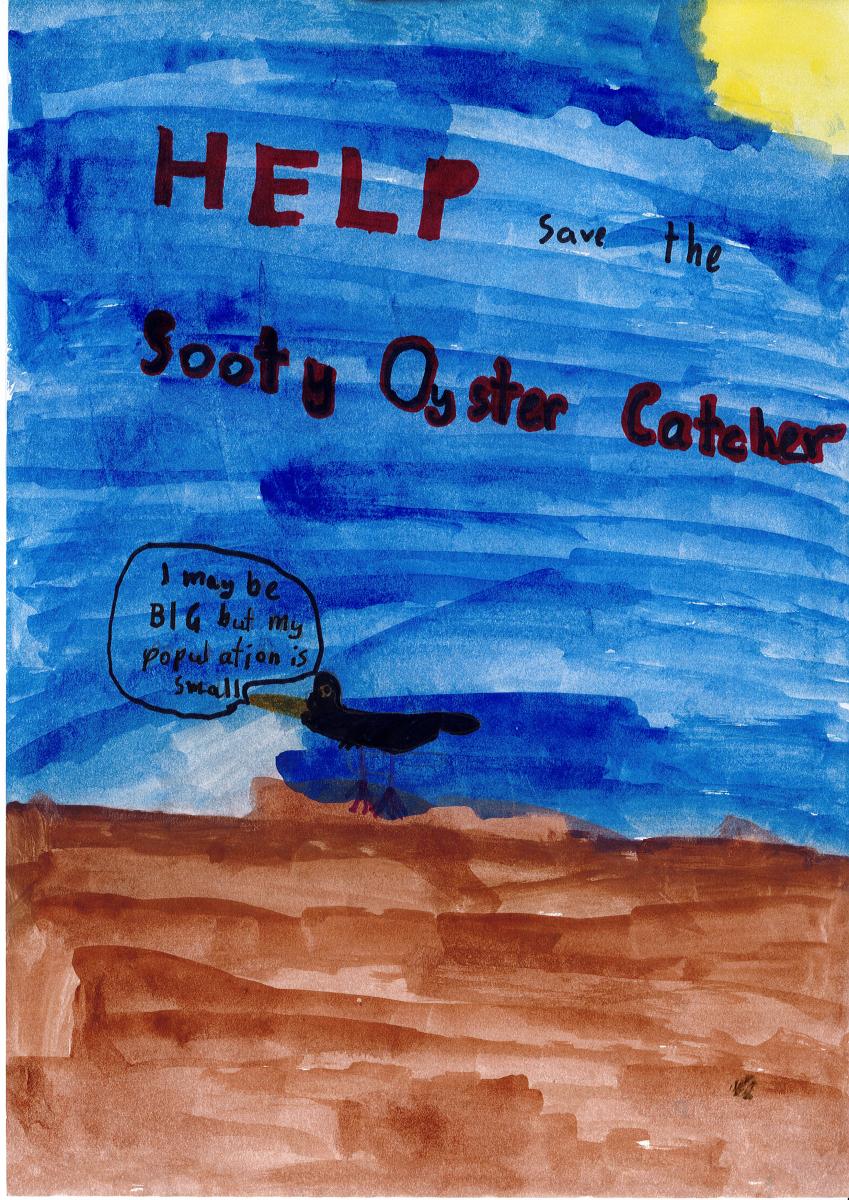 HELP save the
Sooty Oyster Catcher
I may be
BIG but my
population is
small